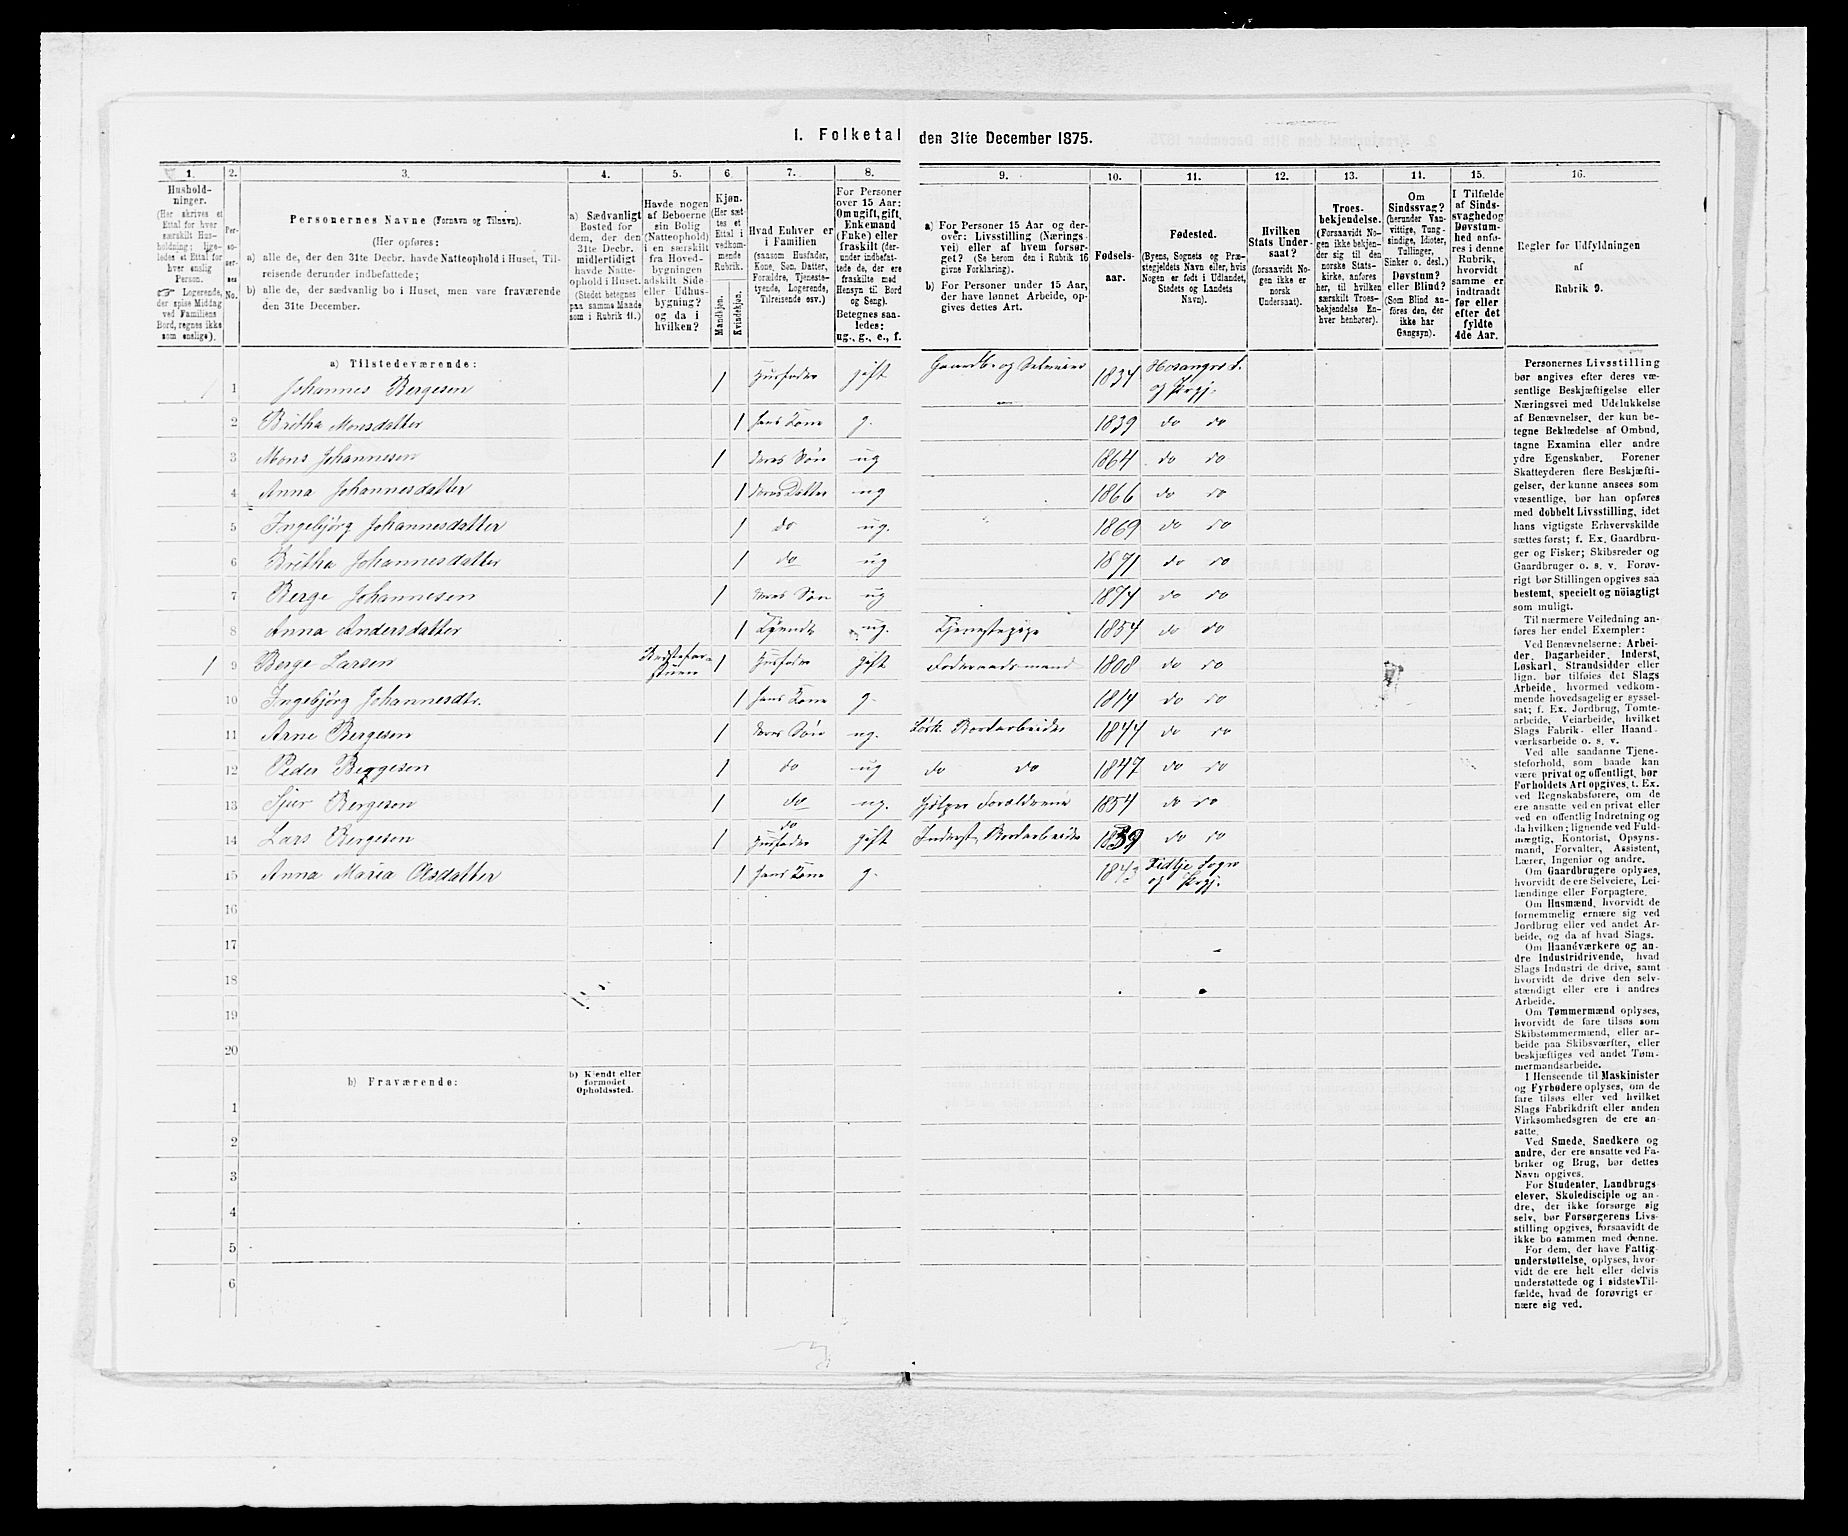 1. Folketal den 31te December 1875.
1.
2.
3.
4.
5.
6.
7.
8.
9.
10.
11.
12.
13.
14.
15.
16.
Hushold-
ninger.
(Her skrives et
Ettal for hver
særskilt Hus-
holdning; lige-
ledes et Ettal for
hver enslig
Person.
☞ Logerende,
der spise Middag
ved Familiens
Bord, regnes ikke
som enslige).
Per-
so-
ner-
nes
No.
Personernes Navne (Fornavn og Tilnavn).
(Her opføres:
a) alle de, der den 31te Decbr. havde Natteophold i Huset, Til-
reisende derunder indbefattede;
b) alle de, der sædvanlig bo i Huset, men vare fraværende
den 31te December.
a) Sædvanligt
Bosted for
dem, der den
31te Decbr.
midlertidigt
havde Natte-
ophold i Huset.
(Stedet betegnes
paa samme Maade
som i Rubrik 11.)
Havde nogen
af Beboerne
sin Bolig
(Natteophold)
i en særskilt
fra Hoved-
bygningen
adskilt Side-
eller Udhus-
bygning?
og da i
hvilken?
Kjøn.
(Her sæt-
tes et
Ettal i
vedkom-
mende
Rubrik.
Mandkjøn.
Kvindekjøn.
Hvad Enhver er
i Familien
(saasom Husfader,
Kone, Søn, Datter,
Forældre, Tjeneste-
tyende, Logerende,
Tilreisende osv.)
For Personer
over 15 Aar:
Om ugift, gift,
Enkemand
(Enke) eller
fraskilt (der-
under indbefat-
tede de, der ere
fraskilte med
Hensyn til Bord
og Seng).
Betegnes saa-
ledes:
ug., g., e., f.
a) For Personer 15 Aar og der-
over: Livsstilling (Nærings-
vei) eller af hvem forsør-
get? (Se herom den i Rubrik 16
givne Forklaring).
b) For Personer under 15 Aar,
der have lønnet Arbeide, op-
gives dettes Art.
Fødsels-
aar.
Fødested.
(Byens, Sognets og Præ-
stegjeldets Navn eller, hvis
Nogen er født i Udlandet,
Stedets og Landets
Navn).
Hvilken
Stats Under-
saat?
(forsaavidt No-
gen ikke er
norsk
Undersaat).
Troes-
bekjendelse.
(Forsaavidt No-
gen ikke bekjen-
der sig til den
norske Stats-
kirke, anføres
her, til hvilken
særskilt Troes-
bekjendelse En-
hver henhører).
Om
Sindssvag?
(herunder Van-
vittige, Tung-
sindige, Idioter,
Tullinger,
Sinker o. desl.)
Døvstum?
eller Blind?
(Som Blind an-
føres den, der
ikke har
Gangsyn).
I Tilfælde
af Sinds-
svaghed og
Døvstum-
hed anfø-
res i denne
Rubrik,
hvorvidt
samme er
indtraadt
før eller
efter det
fyldte
4de Aar.
Regler for Udfyldningen
af
Rubrik 9.
a) Tilstedeværende:
1 1 Johannes Bergesen 1 Husfader gift Gaardb. og Selveier 1834 Hosangers S. og Prgj.
2 Britha Monsdatter 1 hans Kone g. 1839 do do
3 Mons Johannesen 1 deres Søn ug 1864 do do
4 Anna Johannesdatter 1 deres Datter ug 1866 do do
5 Ingebjörg Johannesdatter 1 do ug. 1869 do do
6 Britha Johannesdatter 1 do ug 1871 do do
7 Berge Johannesen 1 deres Søn ug 1874 do do
8 Anna Andersdatter 1 Tyende ug. Tjenestepige 1854 do do
1 9 Berge Larsen 1 Husfader gift Föderaadsmand 1808 do do
10 Ingebjörg Johannesdtr. 1 hans Kone g. 1814 do do
11 Arne Bergesen 1 deres Søn ug. Løsk. Jordarbeider 1844 do do
12 Peder Bergesen 1 do ug do do 1847 do do
13 Sjur Bergesen 1 do ug. hjelper Forældrene 1854 do do
14 Lars Bergesen 1 do Husfader gift Inderst Jordarbeider 1839 do do
15 Anna Maria Olsdatter 1 hans Kone g. 1843 Sogn og Prgj.
16
17
18
19
20
b) Fraværende:
b) Kjendt eller
formodet
Opholdssted.
1
2
3
4
5
6
Personernes Livsstilling
bør angives efter deres væ-
sentlige Beskjæftigelse eller
Næringsvei med Udelukkelse
af Benævnelser, der kun be-
tegne Beklædelse af Ombud,
tagne Examina eller andre
ydre Egenskaber. Forener
Skatteyderen flere Beskjæfti-
gelser, der kunne ansees som
væsentlige, bør han opføres
med dobbelt Livsstilling, idet
hans vigtigste Erhvervskilde
sættes først; f. Ex. Gaardbru-
ger og Fisker; Skibsreder og
Gaardbruger o. s. v. Forøv-
rigt bør Stillingen opgives saa
bestemt, specielt og nöiagtigt
som muligt.
Til nærmere Veiledning an-
føres her endel Exempler:
Ved Benævnelserne: Arbei-
der, Dagarbeider, Inderst,
Løskarl, Strandsidder eller
lign. bør tilføies det Slags
Arbeide, hvormed vedkom-
mende hovedsagelig er syssel-
sat; f. Ex. Jordbrug, Tomte-
arbeide, Veiarbeide, hvilket
Slags Fabrik- eller Haand-
værksarbeide o. s. v.
Ved alle saadanne Tjene-
steforhold, som baade kan
være privat og offentligt, bør
Forholdets Art opgives, t. Ex.
ved Regnskabsførere, om de
ere ansatte ved en privat eller
ved en offentlig Indretning og
da hvilken; lignende ved Fuld-
mægtig, Kontorist, Opsyns-
mand, Forvalter, Assistent,
Lærer, Ingeniør og andre.
Om Gaardbrugere oplyses,
hvorvidt de ere Selveiere, Lei-
lændinge eller Forpagtere.
Om Husmænd, hvorvidt de
fornemmelig ernære sig ved
Jordbrug eller ved andet Ar-
beide, og da af hvad Slags.
Om Haandværkere og an-
dre Industridrivende, hvad
Slags Industri de drive, samt
hvorvidt de drive den selv-
stændigt eller ere i andres
Arbeide.
Om Tømmermænd oplyses,
hvorvidt de fare tilsøs som
Skibstømmermænd, eller ar-
beide paa Skibsværfter, eller
beskjæftiges ved andet Tøm-
mermandsarbeide.
I Henseende til Maskinister
og Fyrbødere oplyses, om de
fare tilsøs eller ved hvilket
Slags Fabrikdrift eller anden
Virksomhedsgren de ere an-
satte.
Ved Smede, Snedkere og
andre, der ere ansatte ved Fa-
briker og Brug, bør dettes
Navn opgives.
For Studenter, Landbrugs-
elever, Skoledisciple og an-
dre, der ikke forsørge sig
selv, bør Forsørgerens Livs-
stilling opgives, forsaavidt de
ikke bo sammen med denne.
For dem, der have Fattig-
understøttelse, oplyses, hvor-
vidt de ere helt eller delvis
understøttede og i sidste Til-
fælde, hvad de forøvrigt er-
nære sig ved.